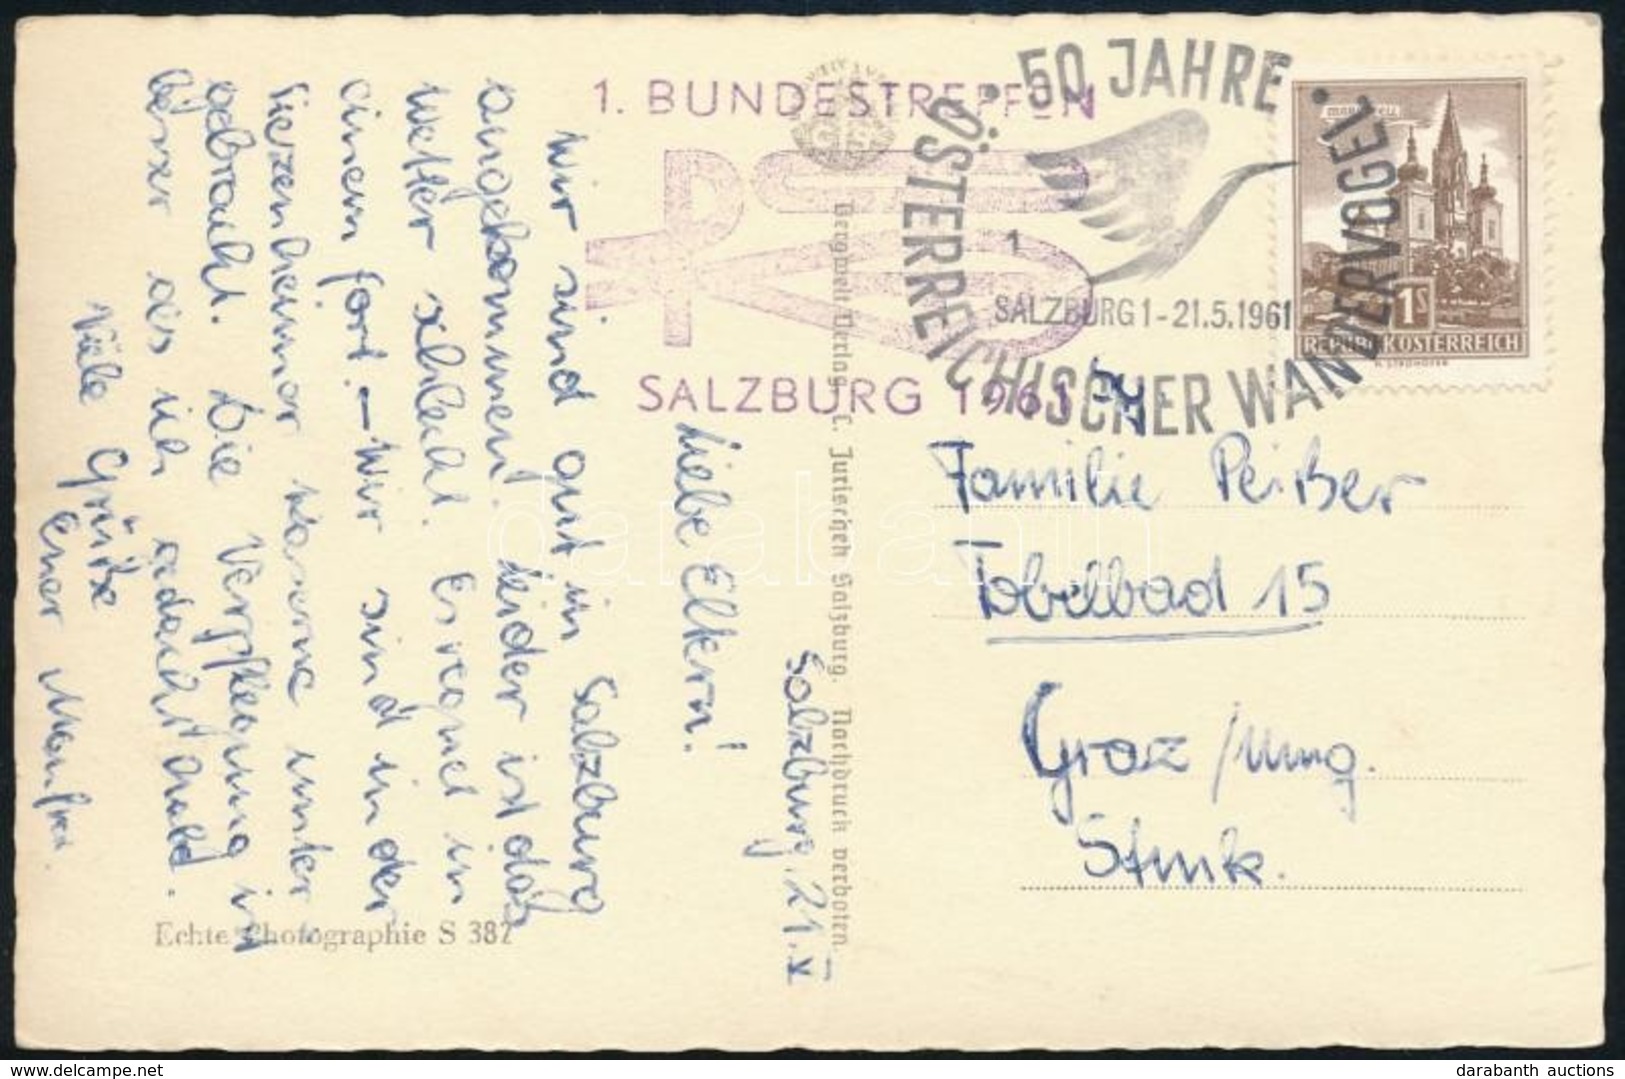 1. BUNDESTREFFEN
SALZBURG 1961
• 50 JAHRE •
ÖSTERREICHISCHER WANDERVÖGEL
1
SALZBURG 1 - 21.5.1961
mariazell
1S
REPUBLIK ÖSTERREICH
Salzburg, 21. V
Liebe Eltern!
Wir sind gut in Salzburg
angekommen. Leider ist das
Wetter schlecht. Es regnet in
einem fort. – Wir sind in der
Siezenheimer Kaserne unter
gebracht. Die Verpflegung ist
besser als ich gedacht habe.
Viele Grüße
Euer Manfred
Familie Peißer
Tobelbad 15
Graz / Umg.
Stmk.
Bergwelt Verlag C. Jurischek Salzburg. Nachdruck verboten.
Echte Photographie S 387
darabanth
www.delcampe.net
darabanth auctions